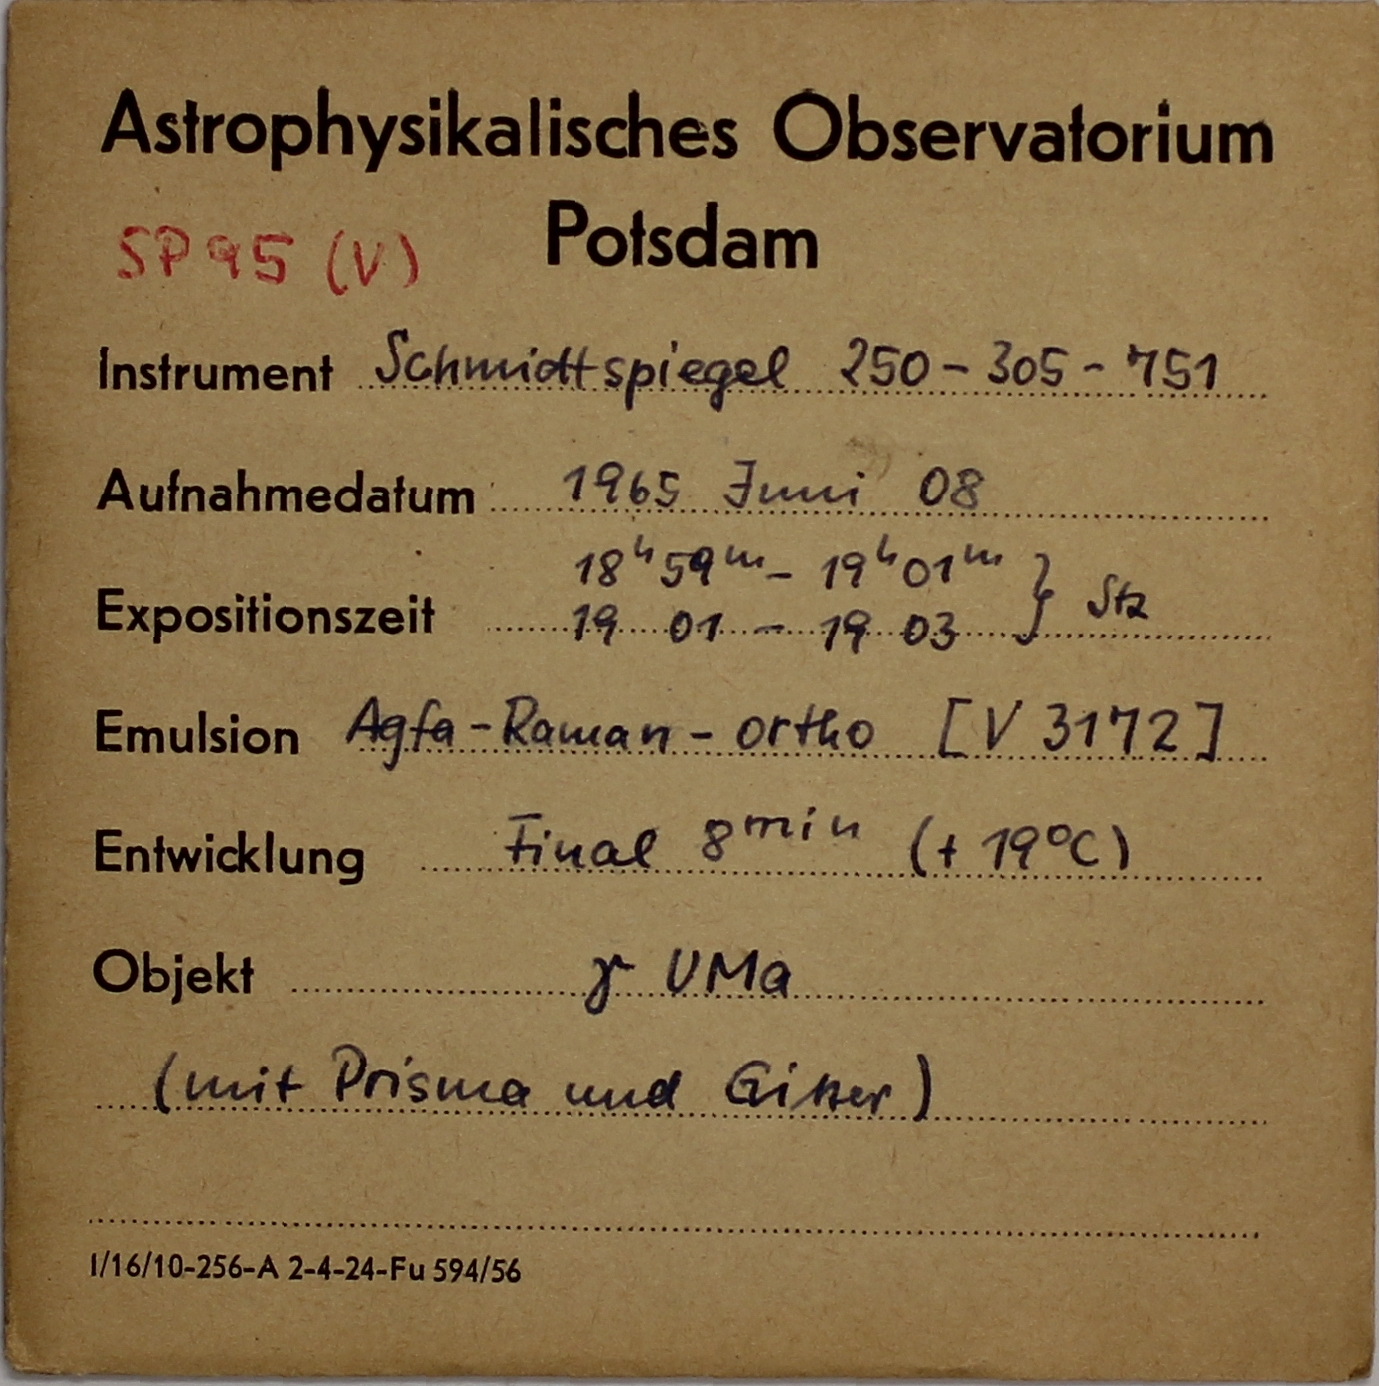 Astrophysikalisches Observatorium
Potsdam
SP95 (V)
Instrument Schmidtspiegel 250-305-751
Aufnahmedatum 1965 Juni 08
18ʰ59ᵐ - 19ʰ01ᵐ
Expositionszeit 19 01 - 19 03 } Stz
Emulsion Agfa-Raman-ortho [V 3172]
Entwicklung Final 8ᵐⁱⁿ (+ 19°C)
Objekt γ UMa
(mit Prisma und Gitter)
I/16/10-256-A 2-4-24-Fu 594/56